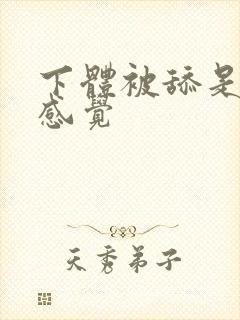 下體被舔是
感覺
天秀弟子